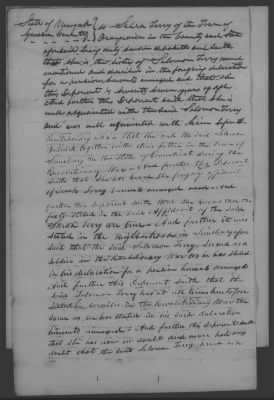 State of Newyork
Genesee County } ss Selva Terry of the Town of
in the County and State
aforesaid being duly sworn deposeth and saith
that she is the Sister of Solomon Terry named
mentioned and described in the foregoing declaration
for a pension hereunto annexed and that she
this Deponent is Seventy Seven years of age
And further this Deponent saith that she is
well acquainted with the said Solomon Terry
and was well acquainted with him before the
Revolutionary war - that she and the said Solomon
resided together with their father in the Town of
Simsbury in the State of Connecticut during the
Revolutionary War - And further this Deponent
saith that she has heard the foregoing affidavit
of Sarah Terry hereunto annexed read - And
further this Deponent saith that she knows that the
facts stated in the said affidavit of the said
Sarah Terry are true - And further it was
stated in the neighborhood in Simsbury aforesaid
said that the said Solomon Terry Served as a
soldier in the Revolutionary War as he has stated
in his declaration for a pension hereunto annexed
And further this Deponent saith that the
said Solomon Terry has at all times heretofore
stated his services in the Revolutionary War the
same as he has stated in his said declaration
hereunto annexed - And further this Deponent saith
that she has now no doubt and never had any
doubt that the said Solomon Terry served as a